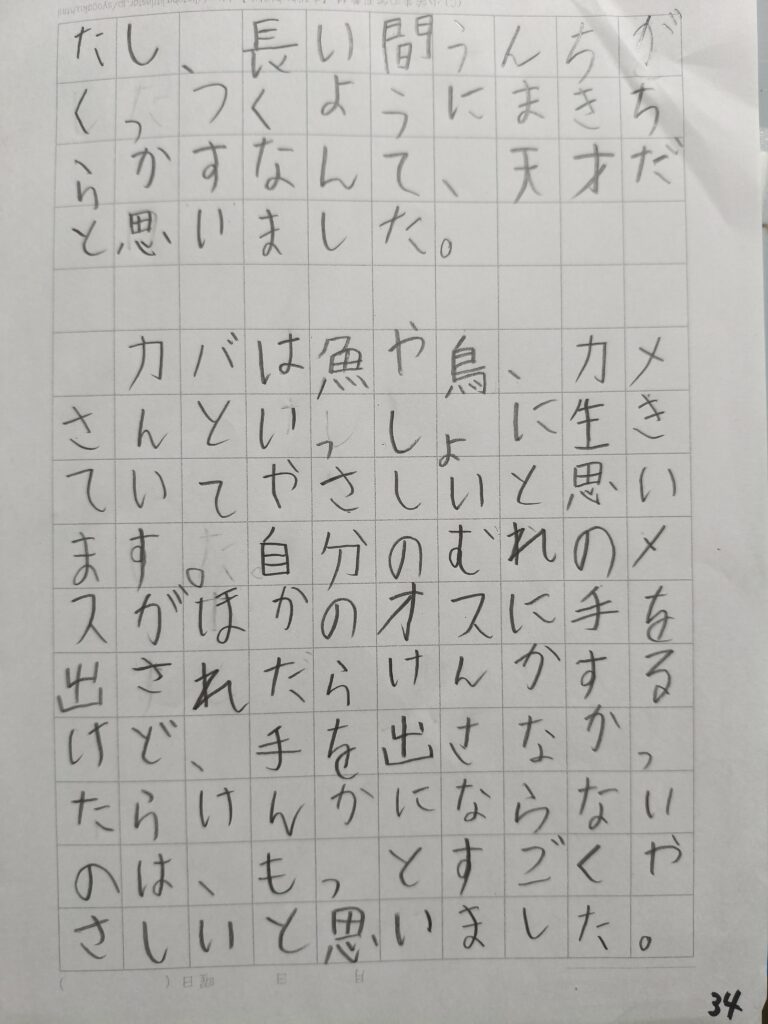 たし、長い間うんちが
くっつくようにまきち
らかすなんて、天才だ
と思いました。
カバは魚や鳥、カメ
さんといっしょに生き
ていてやさしいと思い
ます。自分のむれのメ
スがほかのオスに手を
出されだらけんかする
けど、手を出さなかっ
たらけんかにならない
のは、もっとすごくや
さしいと思いました。
34